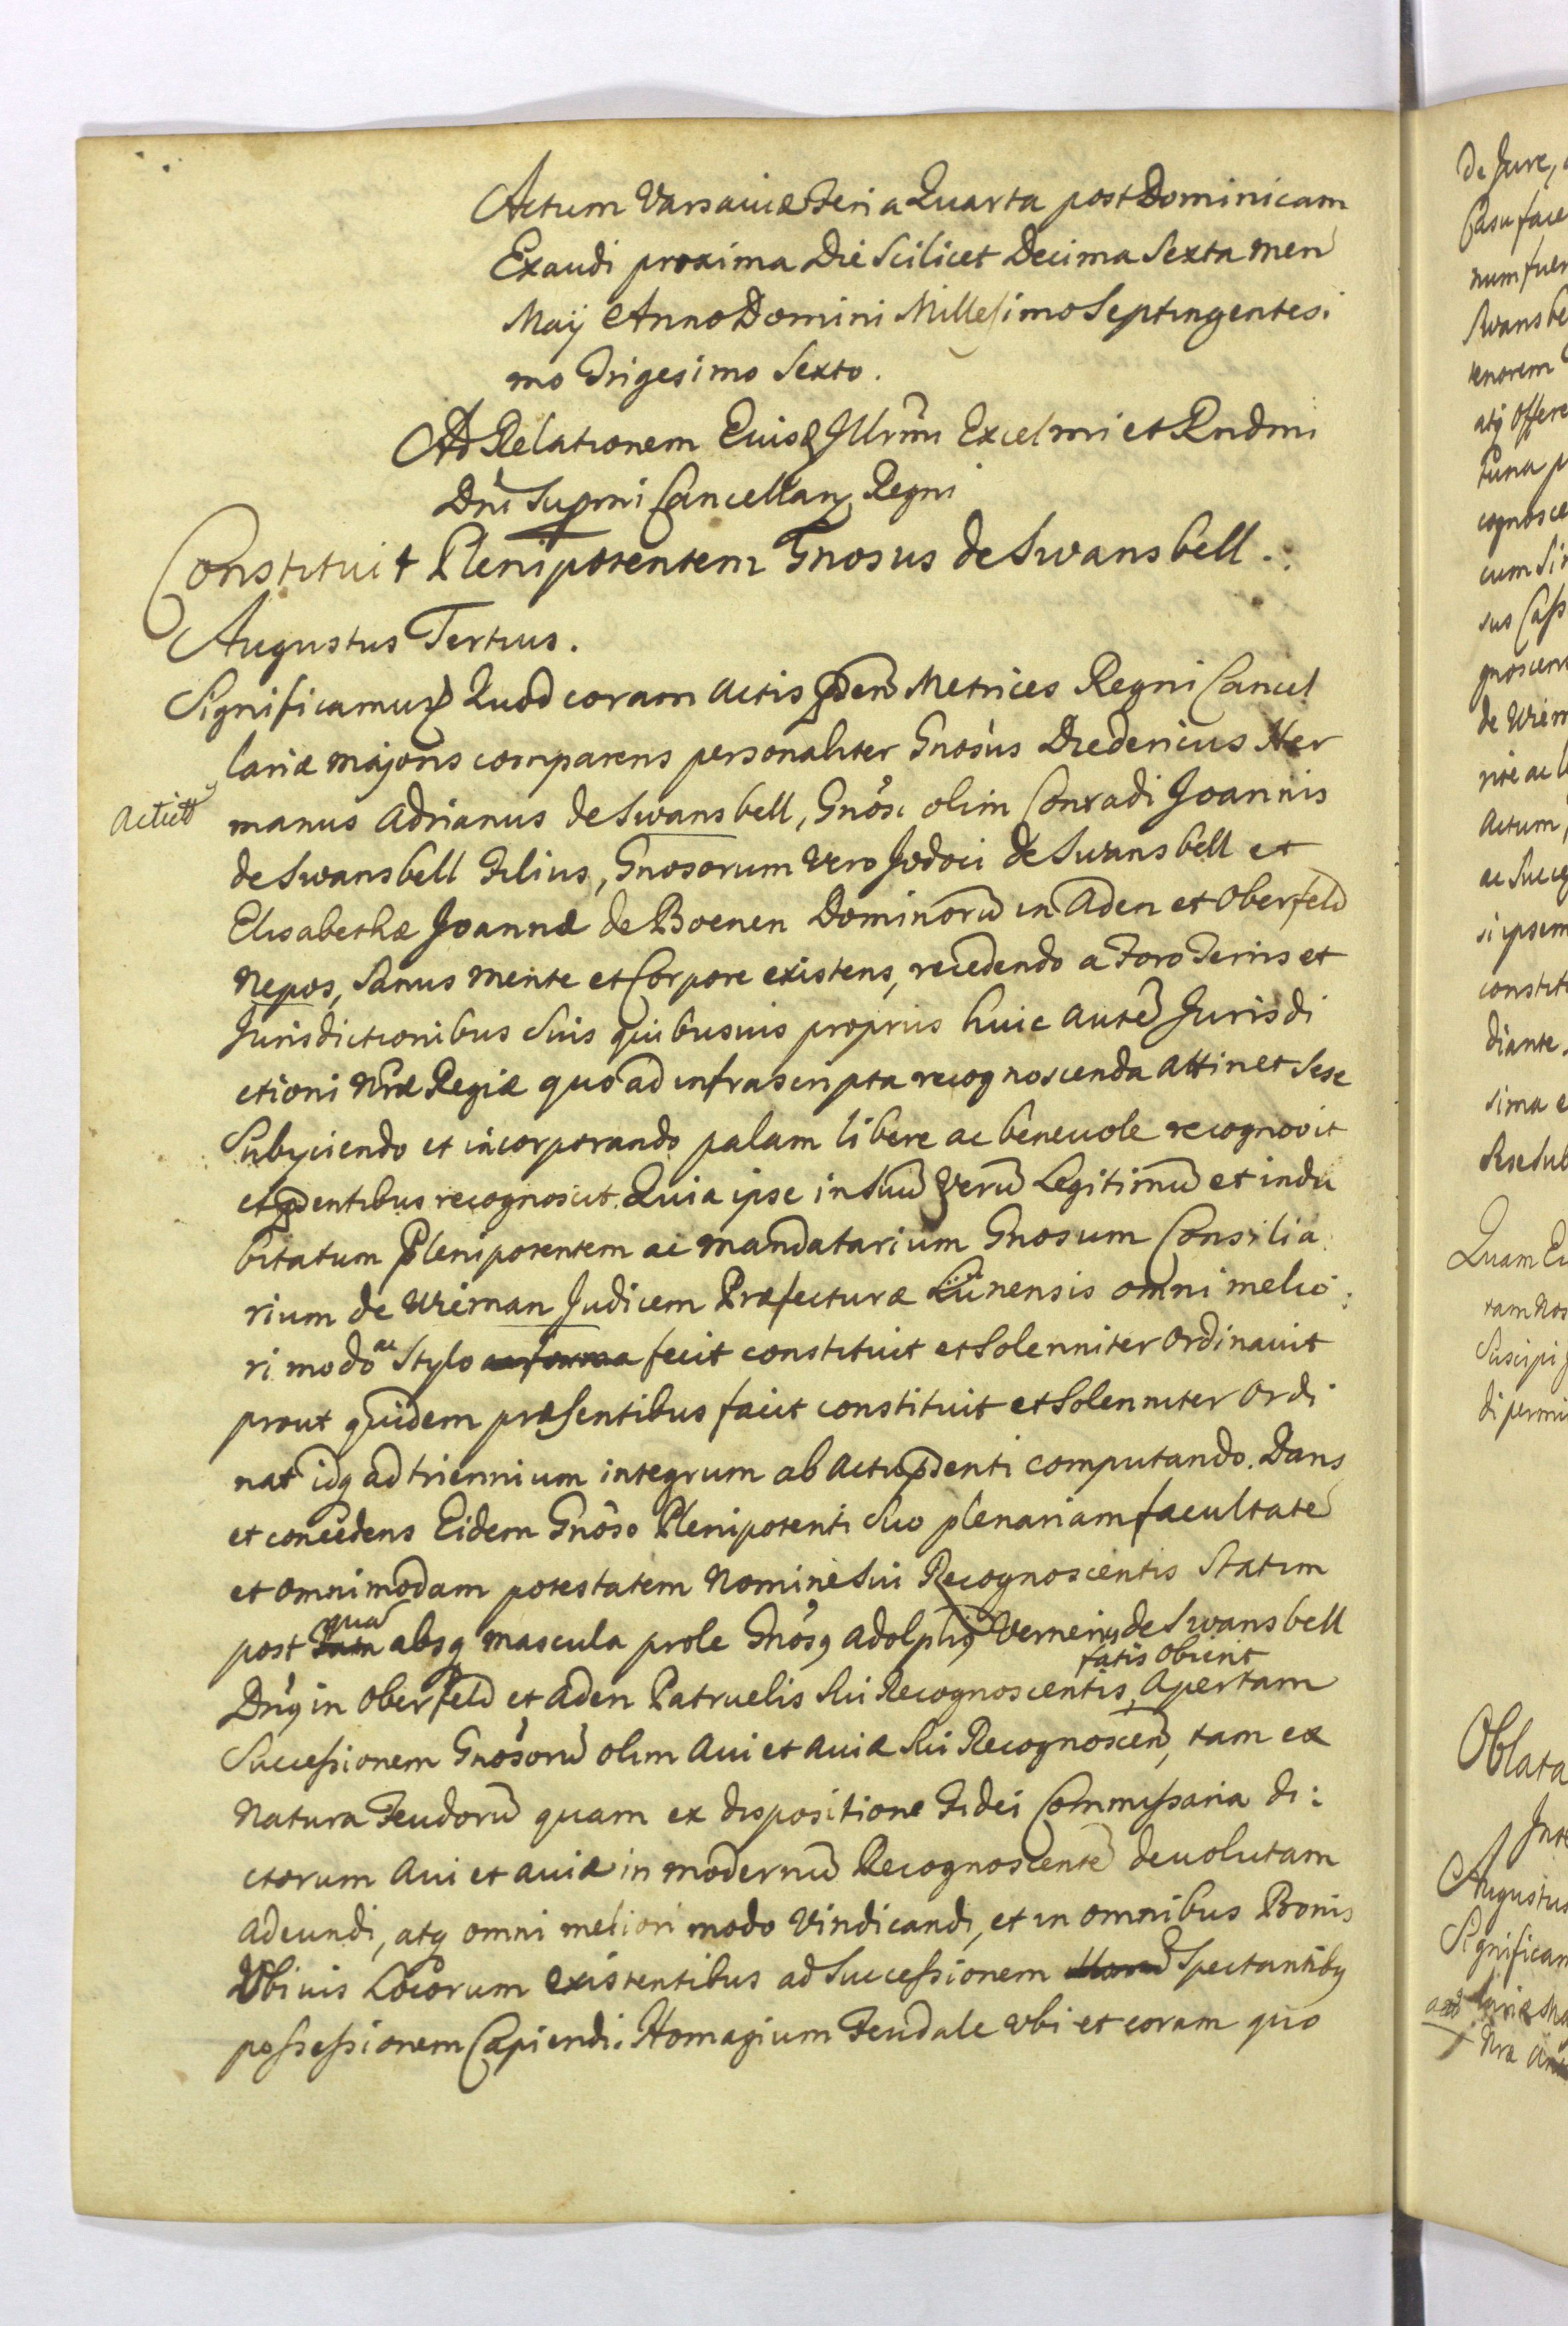 Actum Varsaviæ Feria Quarta post Dominicam
Exaudi proxima Die Scilicet Decima Sexta Men
Maÿ Anno Domini Millesimo Septingentesi
mo Trigesimo Sexto.
Ad Relationem Eiusd Illrmi Excelmi et Rndmi
Dni Supmi Cancellarÿ Regni
Constituit Plenipotentem Gnosus de Swansbell.
Augustus Tertius.
Significamus Quod coram Actis pden Metrices Regni Cancel
lariæ majoris comparens personaliter Gnosus Diedericus Her
Actictt manus Adrianus de Swansbell, Gnosi olim Conradi Joannis
de Swansbell Filius, Gnosorum vero Jodoci de Swansbell et
Elisabethæ Joannæ de Boenen Dominorū in Aden et Oberfeld
Nepos, Sanus mente et Corpore existens, recedendo a Foro Terris et
Jurisdictionibus Suis quibusvis propriis huic autē Jurisdi
ctioni Nræ Regiæ quo ad infrascripta recognoscenda attinet Sese
Subÿciendo et incorporando palam libere ac benevole recognovit
et pdentibus recognoscit. Quia ipse in Suū verū Legitimū et indu
bitatum plenipotentem ac mandatarium Gnosum Consilia
rium de Wieman Judicem Præfecturæ Lünensis omni melio:
ri modo ac Stylo ac forma fecit constituit et Solenniter Ordinavit
prout quidem præsentibus facit constituit et Solenniter Ordi
nat idq ad triennium integrum ab Actu pdenti computando. Dans
et concedens Eidem Gnoso Plenipotenti Suo plenariam facultatē
et omnimodam potestatem Nomine Sui Recognoscentis Statim
post quā absq mascula prole Gnosq Adolphq Wernerq de Swansbell
fatis obierit
Dnq in Oberfeld et Aden Patruelis Sui Recognoscentis, Apertam
Successionem Gnosorū olim Avi et Aviæ Sui Recognoscen, tam ex
Natura Feudorū quam ex dispositione Fidei Commissaria di:
ctorum Avi et aviæ in modernū Recognoscentē devolutam
adeundi, atq omni meliori modo Vindicandi, et in omnibus Bonis
Ubivis Locorum existentibus ad Successionem Spectantibq
possessionem Capiendi. Homagium Feudale ubi et coram quo
de Jure,
Casu face
num fuer
Swansbe
tenorem
atq offere
tuna p
cognosce
cum Si
sus Cass
gnoscen
de Wiem
rite ac l
Actum,
ac Succe
si ipsem
constit
diante.
sima e
Sese Sub
Quam
ram Nos
Suscipi
di permi
Oblata
Augustus
Significam